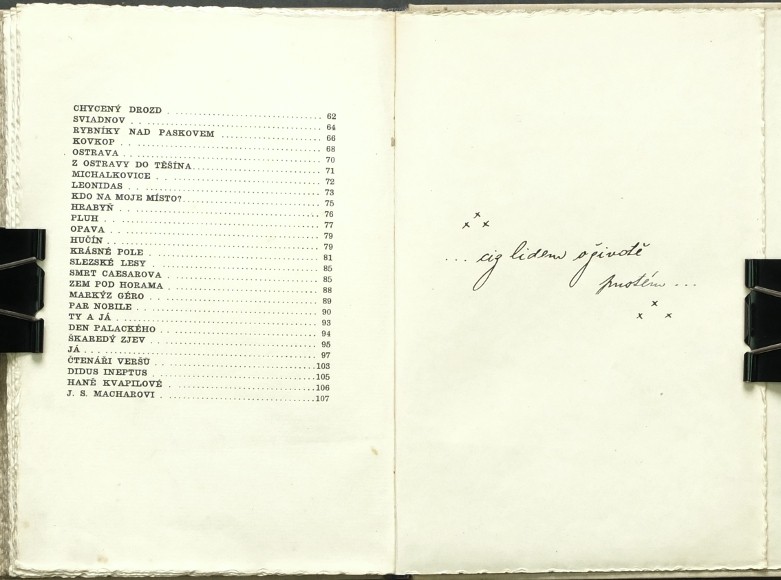 CHYCENÝ DROZD . . . . . . . . . . . . . . . . . . . . . . . 62
SVIADNOV . . . . . . . . . . . . . . . . . . . . . . . 64
RYBNÍKY NAD PASKOVEM . . . . . . . . . . . . . . . . 66
KOVKOP . . . . . . . . . . . . . . . . . . . . . . . 68
OSTRAVA . . . . . . . . . . . . . . . . . . . . . . . 70
Z OSTRAVY DO TĚŠÍNA . . . . . . . . . . . . . . . . . 71
MICHALKOVICE . . . . . . . . . . . . . . . . . . . . . 72
LEONIDAS . . . . . . . . . . . . . . . . . . . . . . . 73
KDO NA MOJE MÍSTO? . . . . . . . . . . . . . . . . . . 75
HRABYŇ . . . . . . . . . . . . . . . . . . . . . . . 76
PLUH . . . . . . . . . . . . . . . . . . . . . . . 77
OPAVA . . . . . . . . . . . . . . . . . . . . . . . 79
HUČÍN . . . . . . . . . . . . . . . . . . . . . . . 79
KRÁSNÉ POLE . . . . . . . . . . . . . . . . . . . . . 81
SLEZSKÉ LESY . . . . . . . . . . . . . . . . . . . . . 85
SMRT CAESAROVA . . . . . . . . . . . . . . . . . . . . 85
ZEM POD HORAMA . . . . . . . . . . . . . . . . . . . . 88
MARKÝZ GÉRO . . . . . . . . . . . . . . . . . . . . . 89
PAR NOBILE . . . . . . . . . . . . . . . . . . . . . . 90
TY A JÁ . . . . . . . . . . . . . . . . . . . . . . . 93
DEN PALACKÉHO . . . . . . . . . . . . . . . . . . . . 94
ŠKAREDÝ ZJEV . . . . . . . . . . . . . . . . . . . . . 95
JÁ . . . . . . . . . . . . . . . . . . . . . . . 97
ČTENÁŘI VERŠŮ . . . . . . . . . . . . . . . . . . . . 103
DIDUS INEPTUS . . . . . . . . . . . . . . . . . . . . 105
HANĚ KVAPILOVÉ . . . . . . . . . . . . . . . . . . . . 106
J. S. MACHAROVI . . . . . . . . . . . . . . . . . . . 107
x x x
. . . lidem životě
. . .
x x x